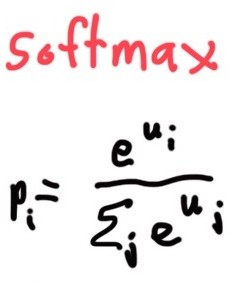 softmax
p_i = e^{u_i} / Σ_j e^{u_j}